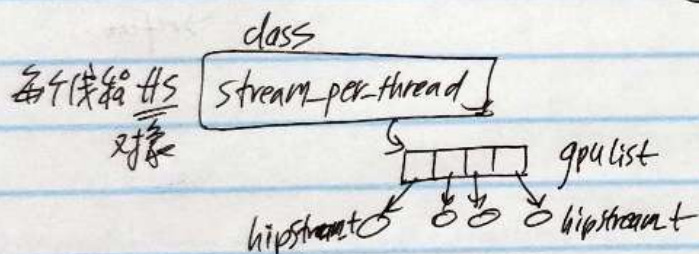 class
每个线程 HS 对象
stream_per_thread
gpulist
hipstream_t
hipstream_t